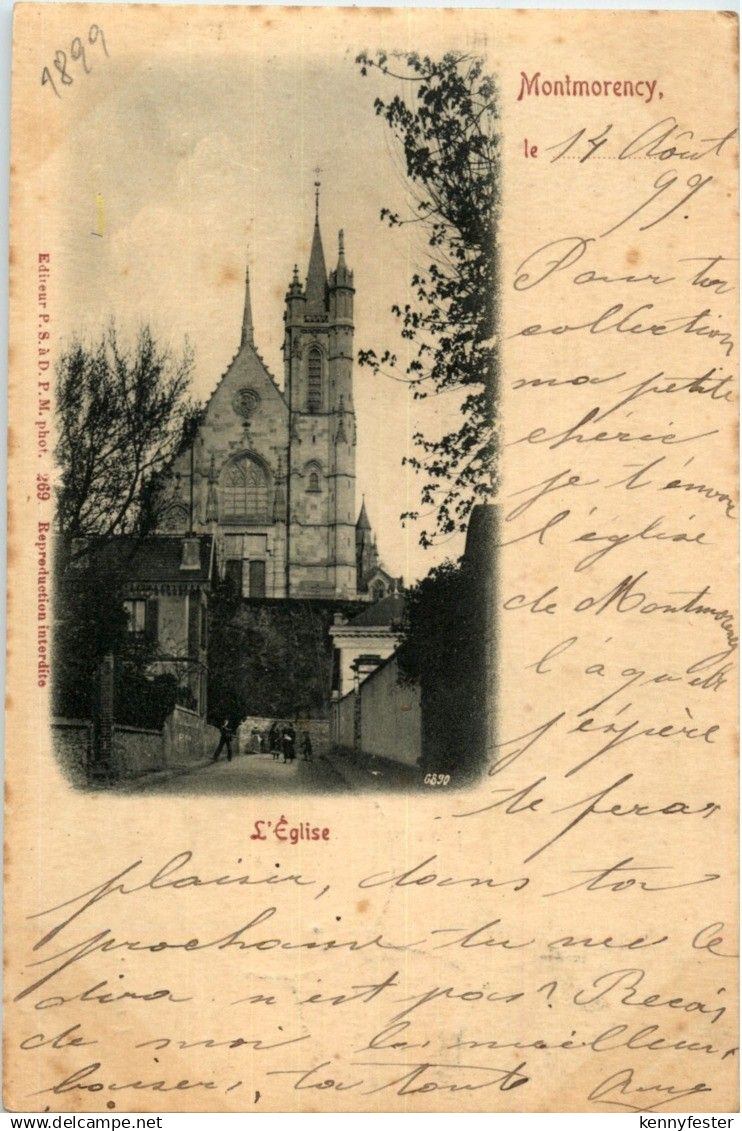 1899
Montmorency,
le 14 Août
99.
Pour ta
collection
ma petite
chérie
je t'envoie
l'église
de Montmorency
j'espère
te feras
plaisir, dans ta
prochaine tu me le
dira n'est pas? Reçois
de moi les meilleurs
baisers, ta tante
L'Église
Editeur P. S. à D. P. M. phot. 269 Reproduction interdite
6890
Delcampe.net
kennyfester